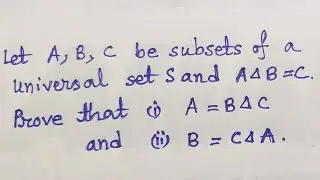 Let A, B, C be subsets of a
universal set S and A Δ B = C.
Prove that (i) A = B Δ C
and (ii) B = C Δ A.